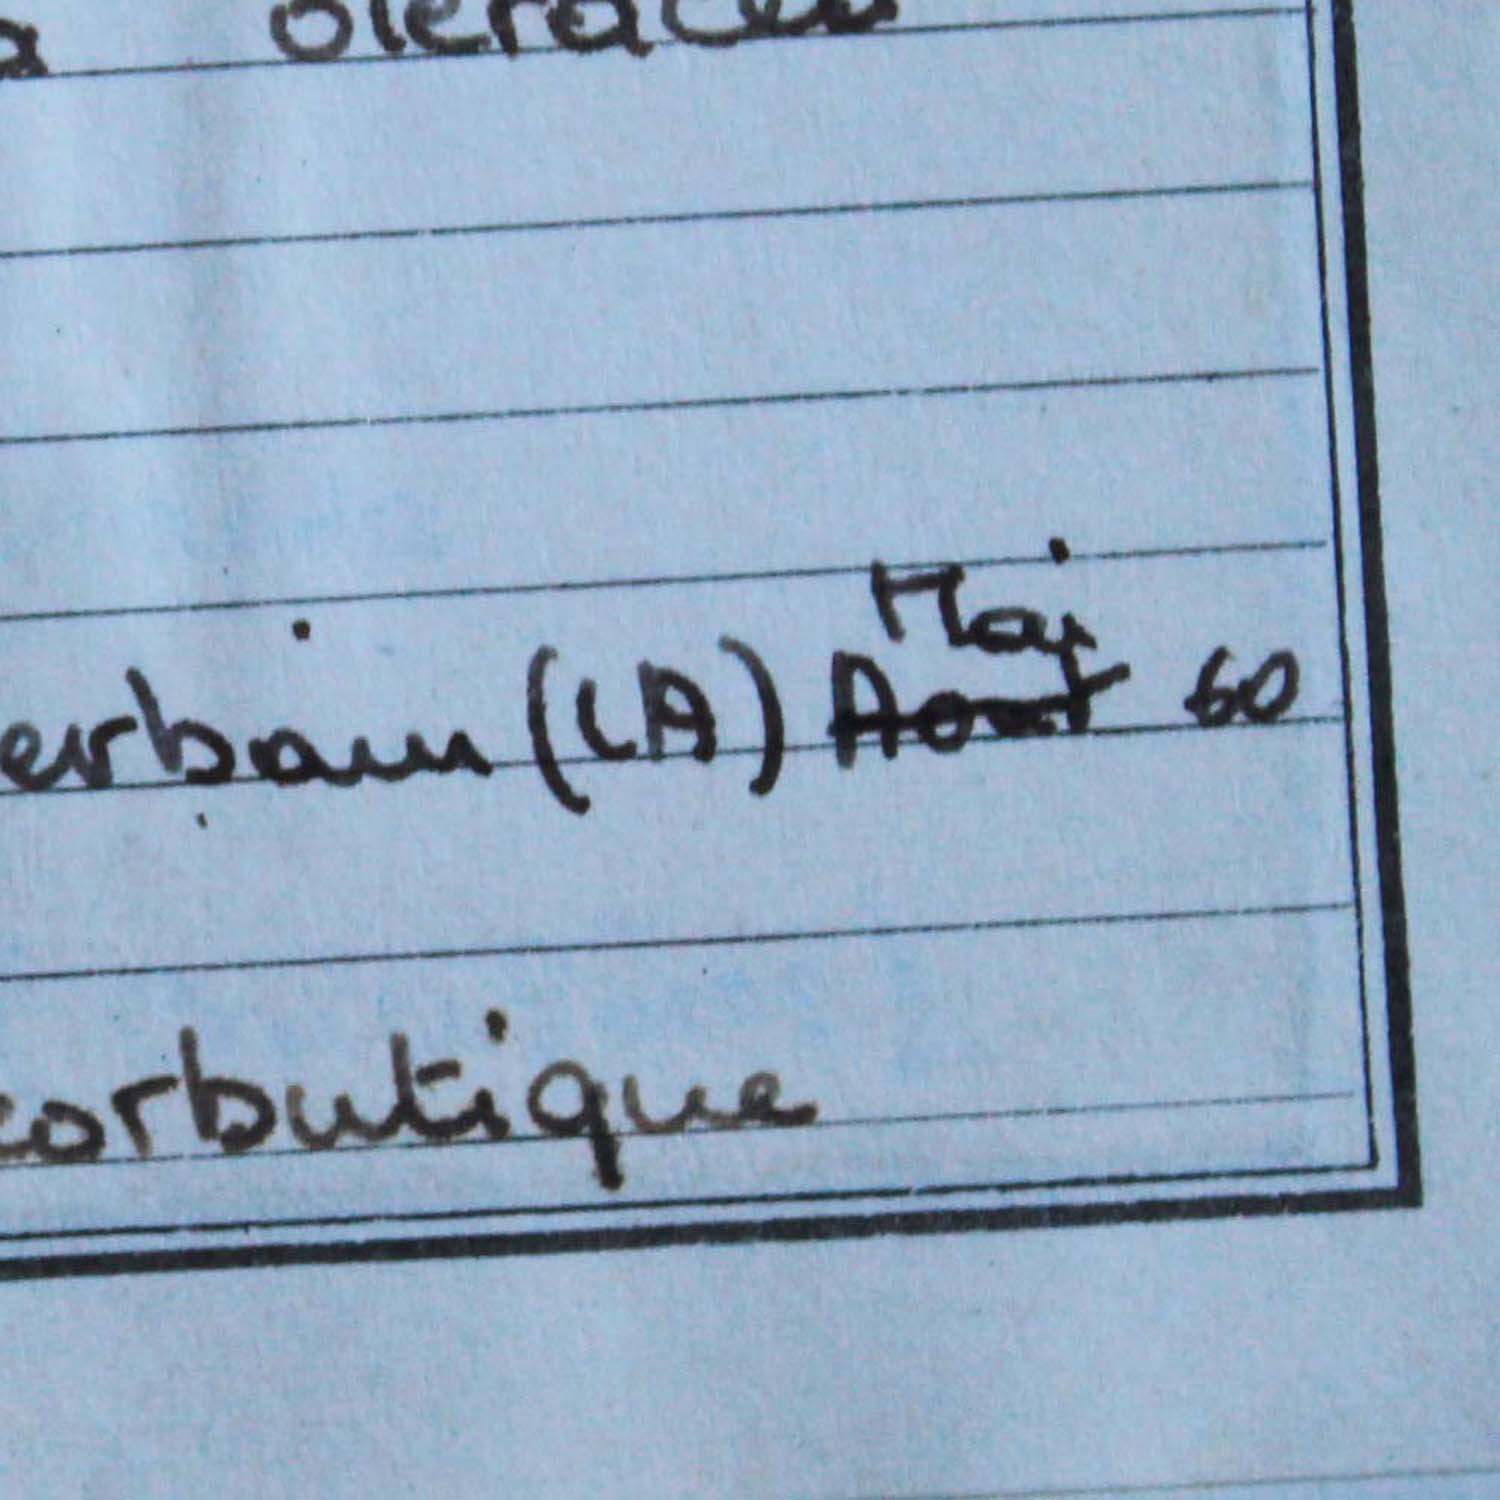 a oleracea
Mai
erbain (LA) Aout 60
corbutique